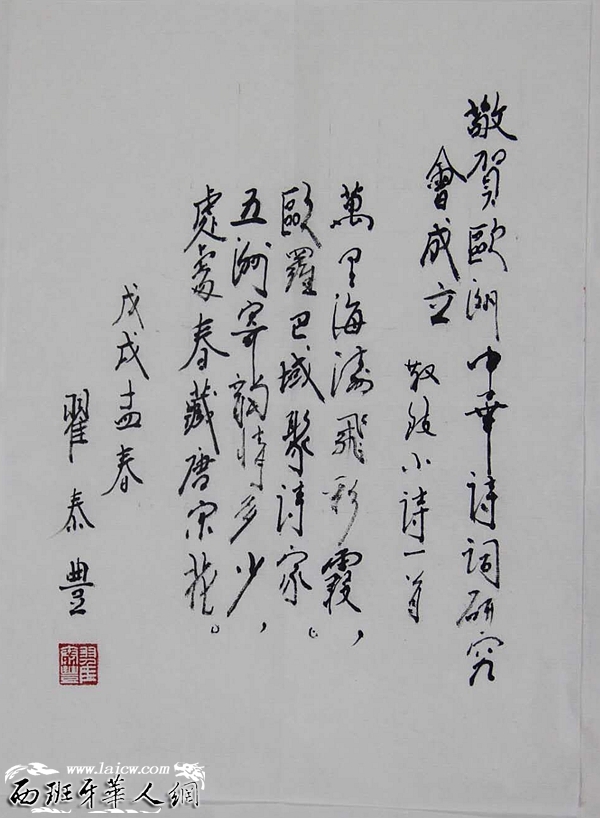 敬賀歐洲中華詩詞研究
會成立 敬小詩一首
萬里海濤飛彩霞，
歐羅巴域聚詩家。
五洲寄韻情多少，
處處春藏唐宋。
戊戌孟春
翟泰豐
www.laicw.com
西班牙華人網